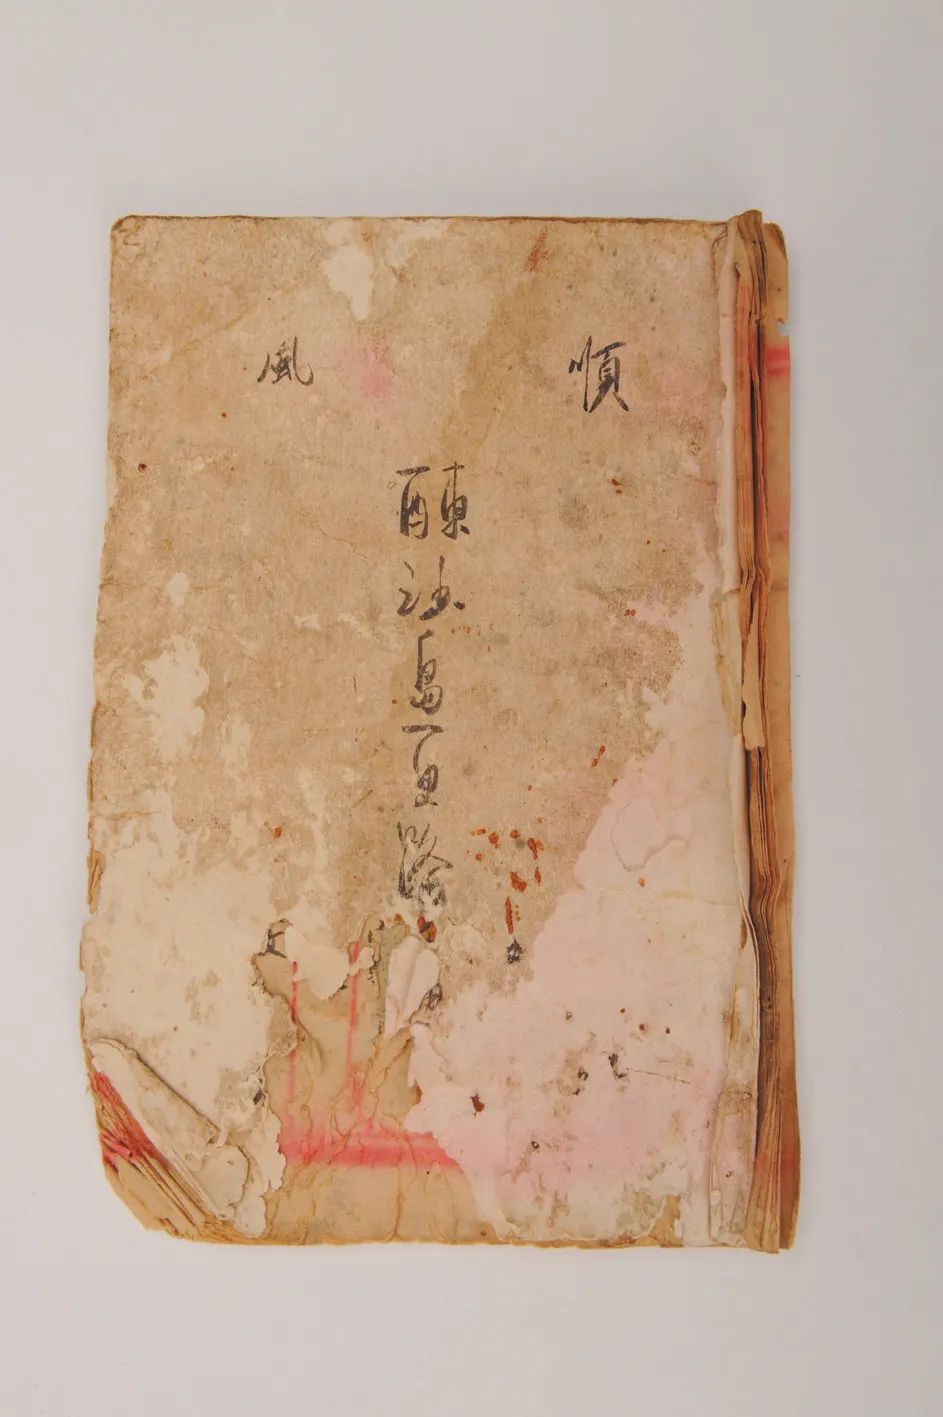 順風
東西沙島更路